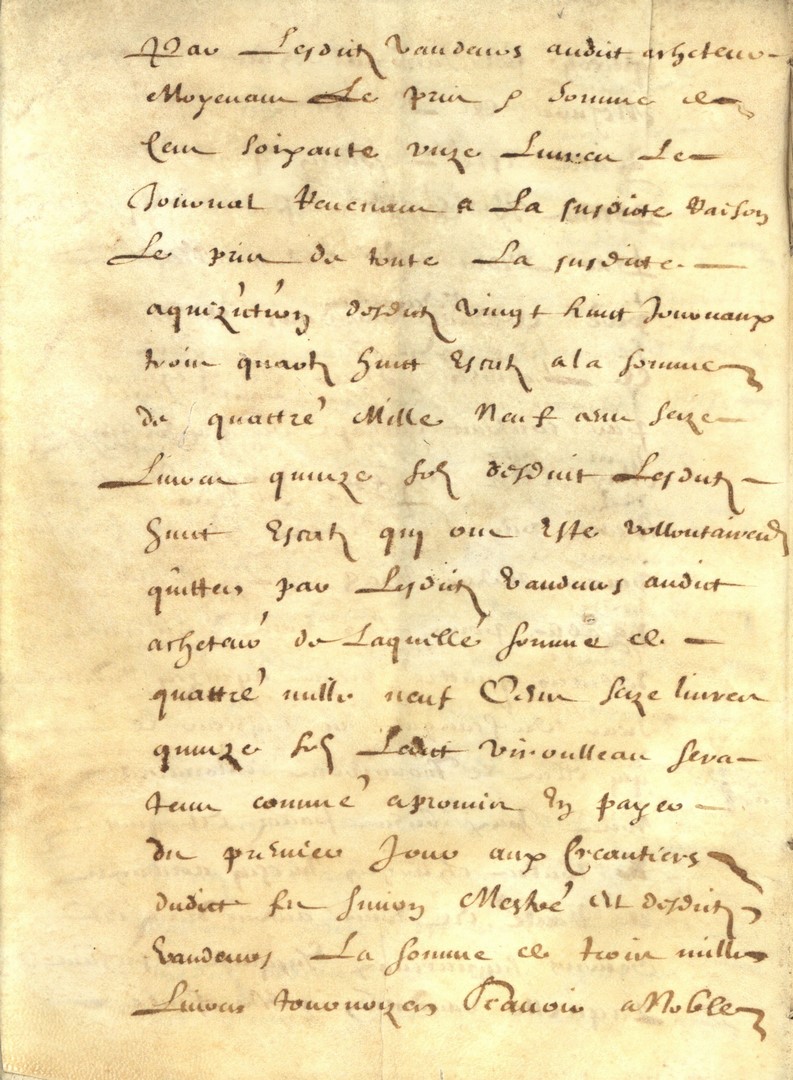 Par Lesdictz Vandeurs audict acheteur
Moyenant Le prix & somme de
Cent soixante unze Livres Le
Journal Revenant a La susdicte Raison
Le prix de toute La susdicte
aquizition desdictz vingt huict Journaux
trois quartz huict Escatz a la somme
de quattre Mille Neuf cens seize
Livres quinze solz desduict Lesdictz
huict Escatz qui ont Este vollontairemt
quittes par Lesdictz Vandeurs audict
acheteur de Laquelle somme de
quattre mille neuf Cens seize livres
quinze solz Ledict Viroulleau sera
tenu comme a promis En payer
du premier Jour aux Creantiers
dudict fu Simon Mestre Et desdictz
Vandeurs La somme de trois mille
Livres tournoyzes Scavoir a Noble